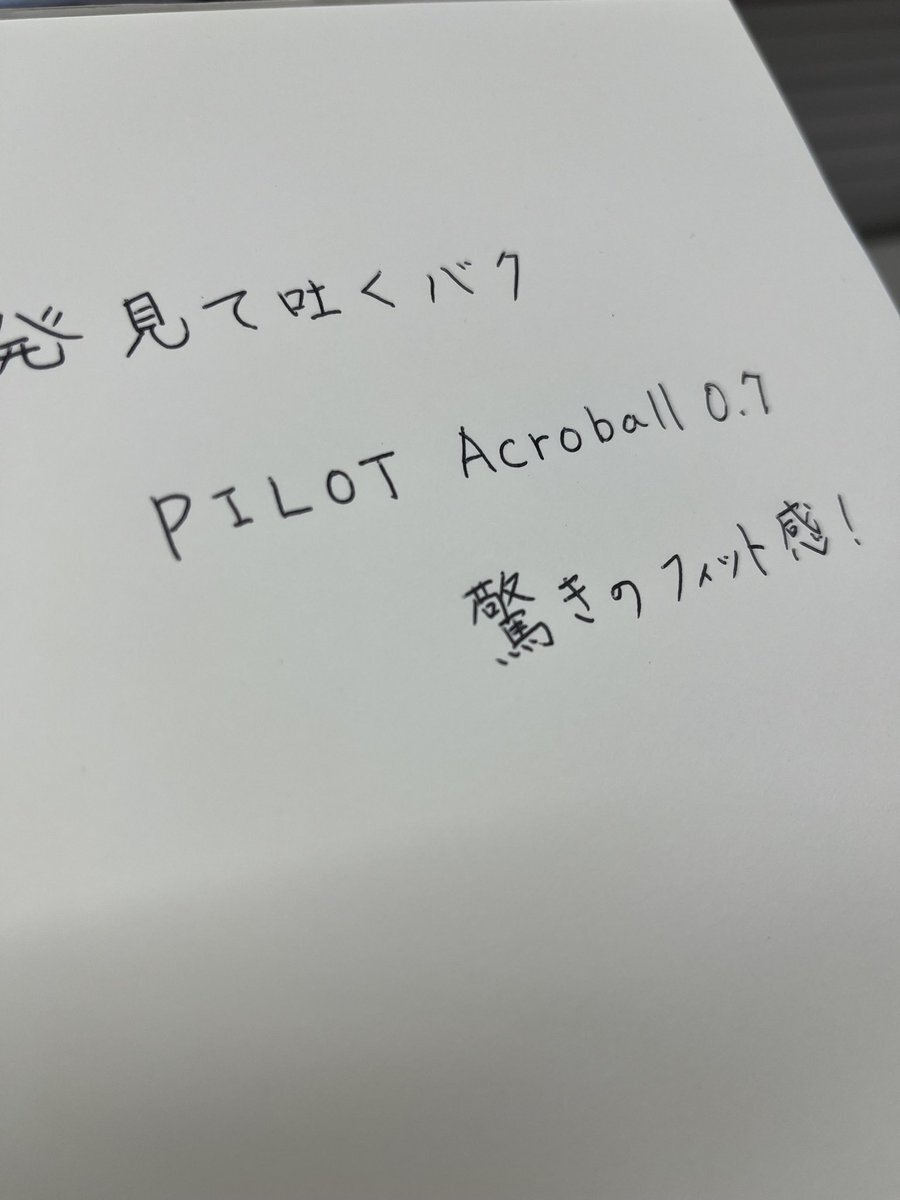 発見て吐くバク
PILOT Acroball 0.7
驚きのフィット感！